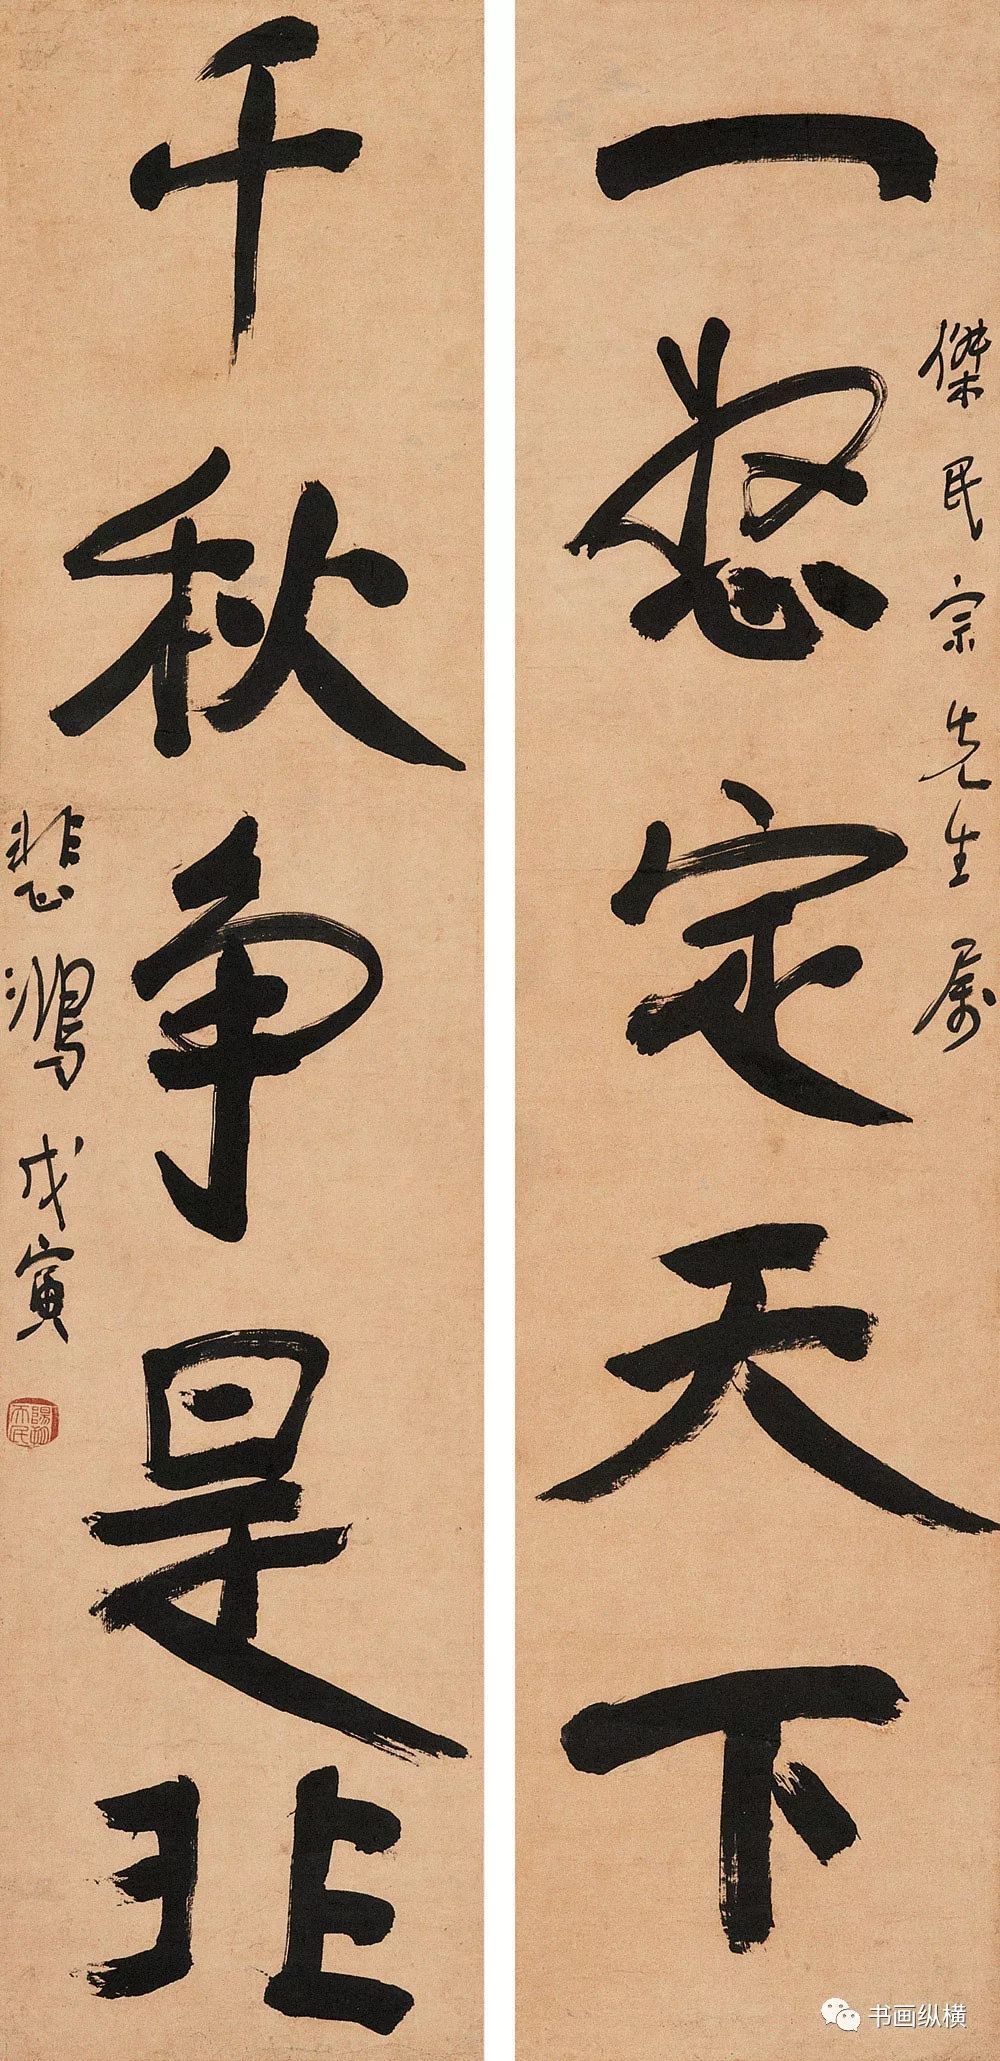 傑民宗先生属
一怒定天下
千秋争是非
悲鴻 戊寅
陽朔天民
书画纵横